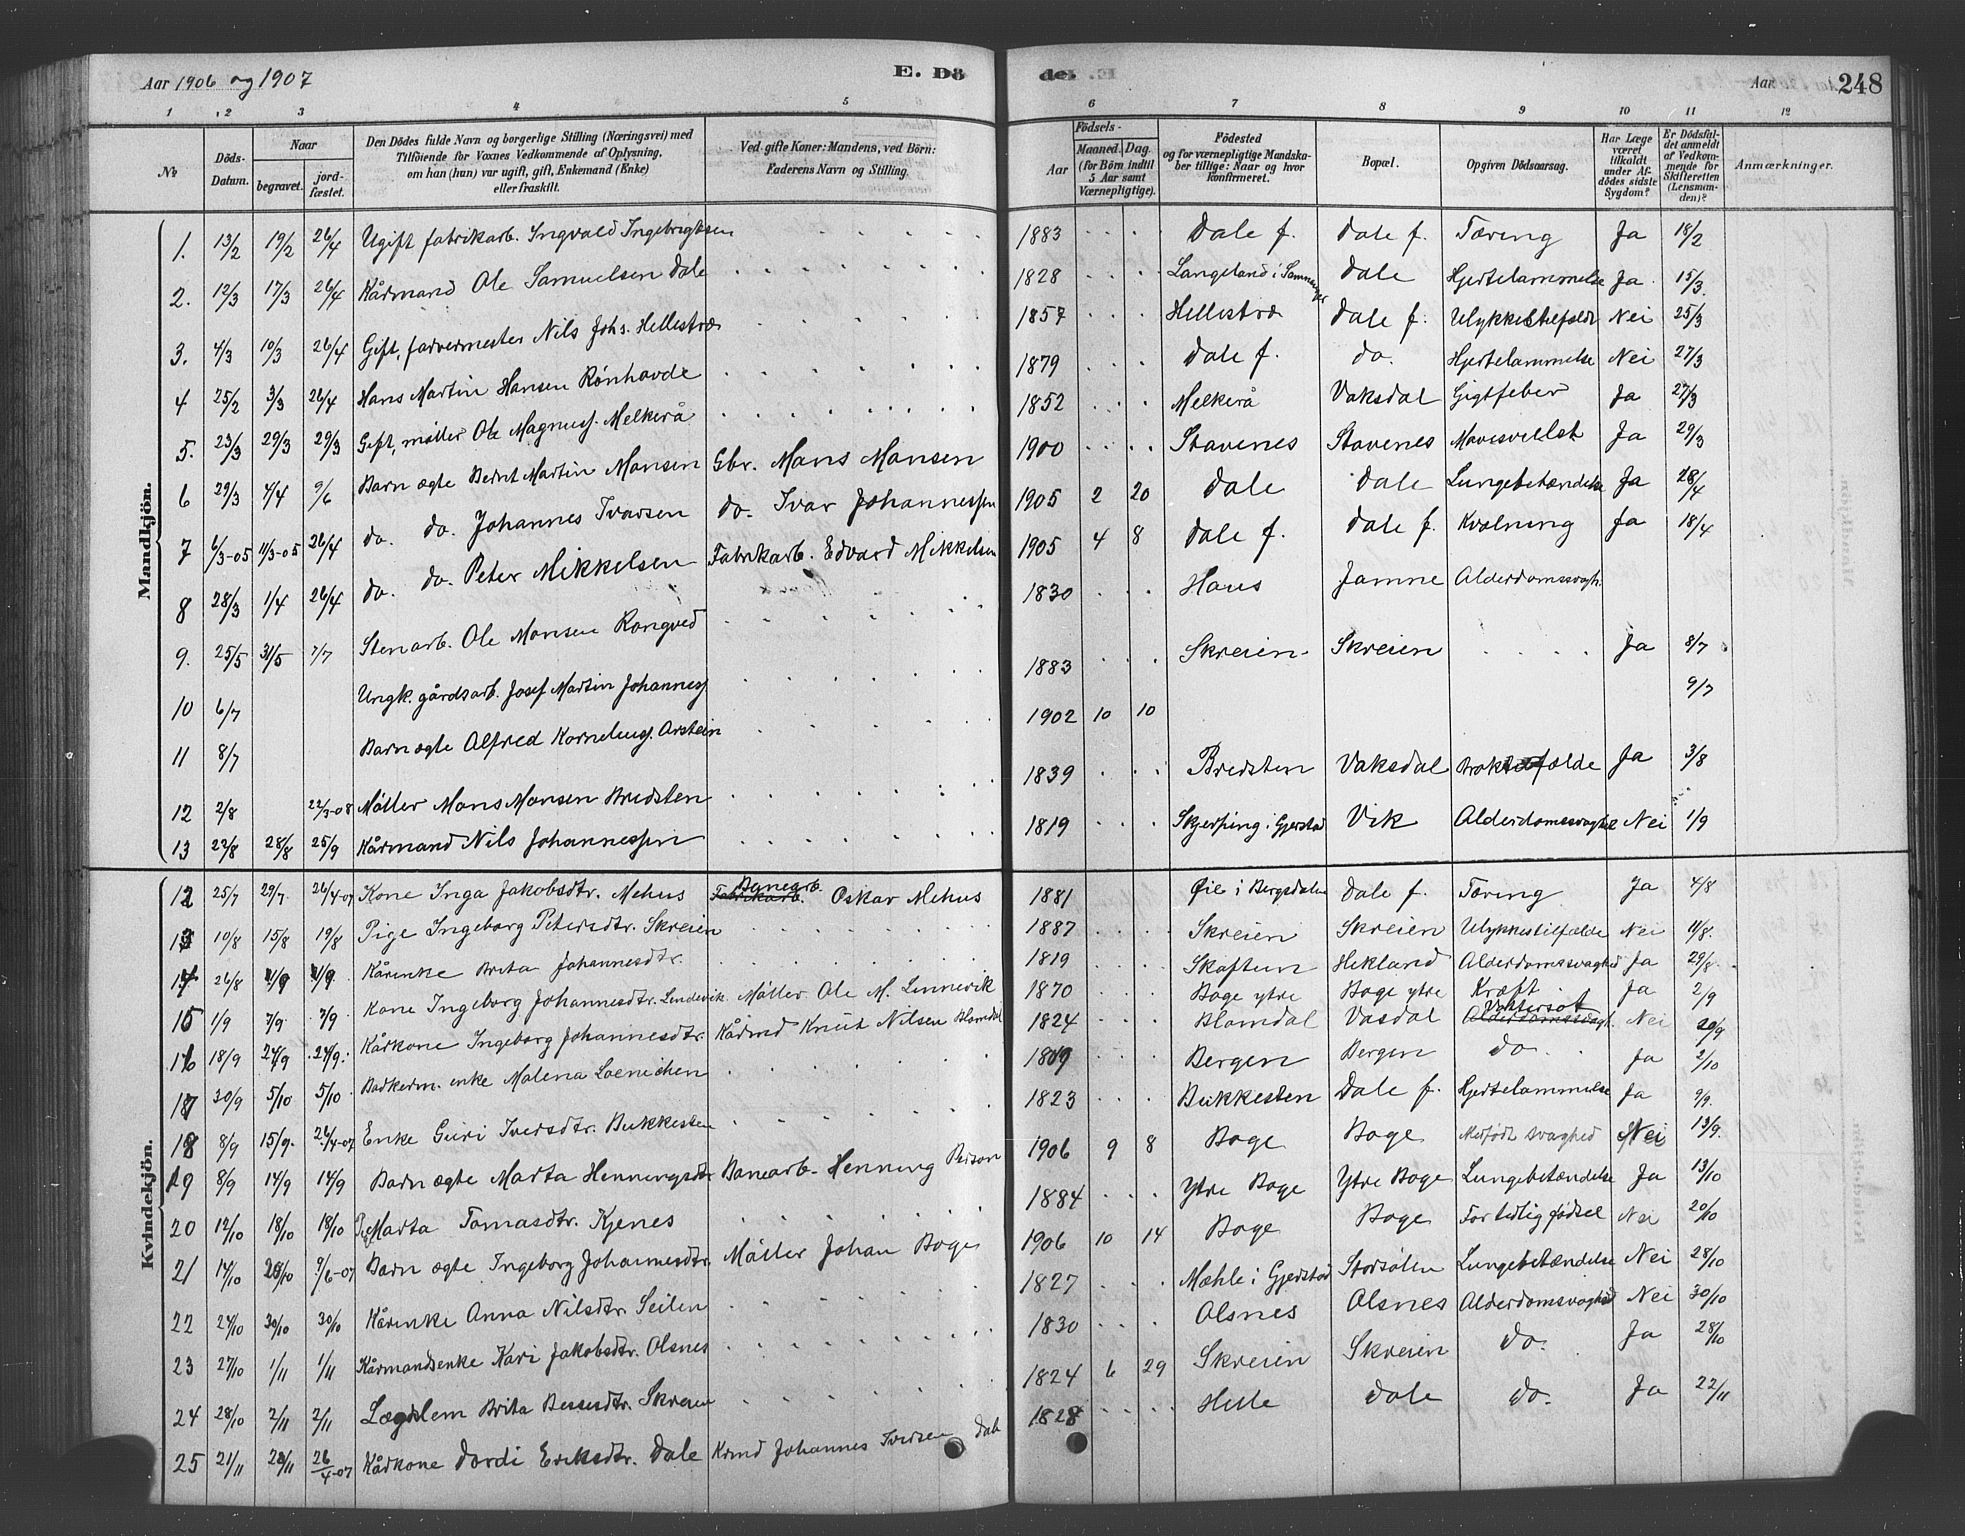 Aar 1906 og 1907 E. Dö
de. Aar 248
1 2 3 4 5 6 7 8 9 10 11 12
No Döds-Datum. Naar begravet. jordfæstet. Den Dödes fulde Navn og borgerlige Stilling (Næringsvei) med Tilföiende for Voxnes Vedkommende af Oplysning, om han (hun) var ugift, gift, Enkemand (Enke) eller fraskilt. Ved gifte Koner: Mandens, ved Börn: Faderens Navn og Stilling. Födsels- Aar Maaned. Dag. (for Börn indtil 5 Aar samt Værnepligtige). Födested og for værnepligtige Mandskaber tillige: Naar og hvor konfirmeret. Bopæl. Opgiven Dödsaarsag. Har Læge været tilkaldt under Afdödes sidste Sygdom? Er Dödsfaldet anmeldt af Vedkommende for Skifteretten (Lensmanden)? Anmærkninger.
Mandkjön.
1. 13/2 19/2 26/4 Ugift fabrikarb. Ingvald Ingebrigtsen 1883 Dale f. Dale f. Tæring Ja 18/2
2. 12/3 17/3 26/4 Kårmand Ole Samuelsen Dale 1828 Langeland i Samnanger Dale Hjertelammelse Ja 15/3
3. 4/3 10/3 26/4 Gift, farvermester Nils Johs. Hellestræ 1857 Hellestræ Dale f. Ulykkestilfælde Nei 25/3
4 25/2 3/3 26/4 Hans Martin Hansen Rønhovde 1879 Dale f. do. Hjertelammelse Nei 27/3
5. 23/3 29/3 29/3 Gift, møller Ole Magnusj. Melkerå 1852 Melkerå Vaksdal Gigtfeber Ja 27/3
6 29/3 4/4 9/6 Barn ægte Bernt Martin Monsen Gbr. Mons Monsen 1900 Stavenes Stavenes Mavesvellst Ja 29/3
7 6/3-05 11/3-05 26/4 do. do. Johannes Ivarsen do. Ivar Johannessen 1905 2 20 Dale Dale Lungebetændelse Ja 28/4
8 28/3 1/4 26/4 do. do. Peter Mikkelsen Fabrikarb. Edvard Mikkelsen 1905 4 8 Dale f. Dale f. Kvælning Ja 18/4
9. 25/5 31/5 7/7 Stenarb. Ole Monsen Rongved 1830 Haus Jamne Alderdomssvagh.
10 6/7 Ungk. gårdsarb. Josef Martin Johannesj. 1883 Skreien Skreien Ja 8/7
11 8/7 Barn ægte Alfred Korneliusj. Arstein 1902 10 10 9/7
12 2/8 22/3-08 Møller Mons Monsen Bredsten 1839 Bredsten Vaksdal Ja 3/8
13 22/8 28/8 25/9 Kårmand Nils Johannessen 1819 Skjerping i Gjerstad Vik Alderdomssvaghed Nei 1/9
Kvindekjön.
12 25/7 29/7 26/4-07 Kone Inga Jakobsdtr. Mehus Fabrikarb. Banearb. Oskar Mehus 1881 Øie i Bergsdalen Dale f. Tæring Ja 4/8
13 10/8 15/8 19/8 Pige Ingeborg Petersdtr. Skreien 1887 Skreien Skreien Ulykkestilfælde Nei 11/8.
14 26/8 4/9 4/9. Kårenke Brita Johannesdtr. 1819 Skaftun Hekland Alderdomssvaghed Ja 29/8
15 1/9 7/9. 7/9 Kone Ingeborg Johannesdtr. Lindevik Møller Ole M. Linnevik 1870 Boge ytre Boge ytre Kræft Ja 2/9
16 18/9 24/9 24/9. Kårkone Ingeborg Johannesdtr. Kårmd Knut Nilsen Blomdal 1824 Blomdal Vasdal Vattersot Alderdomssvagh. Nei 20/9
17 30/9 5/10 5/10 enke Malena Loenichen 1809 Bergen Bergen do. Ja 2/10
18 8/9 15/9. 26/4-07 Enke Guri Iversdtr. Bukkesten 1823 Bukkesten Dale f. Hjertelammelse Ja 9/9.
19 8/9 14/9 14/9 Barn ægte Marta Henningsdtr. Banearb. Henning 1906 9 8 Boge Boge Medfødt svaghed Nei 13/9.
20 12/10 18/10 18/10 Pige Marta Tomasdtr. Kjenes 1884 Ytre Boge Ytre Boge Lungebetændelse Ja 13/10
21 14/10 20/10 9/6-07 Barn ægte Ingeborg Johannesdtr. Møller Johan Boge 1906 10 14 Boge Boge For tidlig fødsel Nei 20/10
22 24/10 30/10 30/10 Kårenke Anna Nilsdtr. Seilen 1827 Mæhle i Gjerstad Storsølen Lungebetændelse Nei 28/10
23 27/10 1/11 1/11 Kårmandsenke Kari Jakobsdtr. Olsnes 1830 Olsnes Olsnes Alderdomssvaghed Nei 30/10
24 28/10 2/11 2/11 Lægdslem Brita Bessesdtr. Skreien 1824 6 29 Skreien Skreien do. Ja 28/10
25 21/11 28/11 26/4-07 Kårkone Dordi Eriksdtr. Dale Krmd Johannes Iversen Dale 1828 Helle Dale do. Ja 22/11